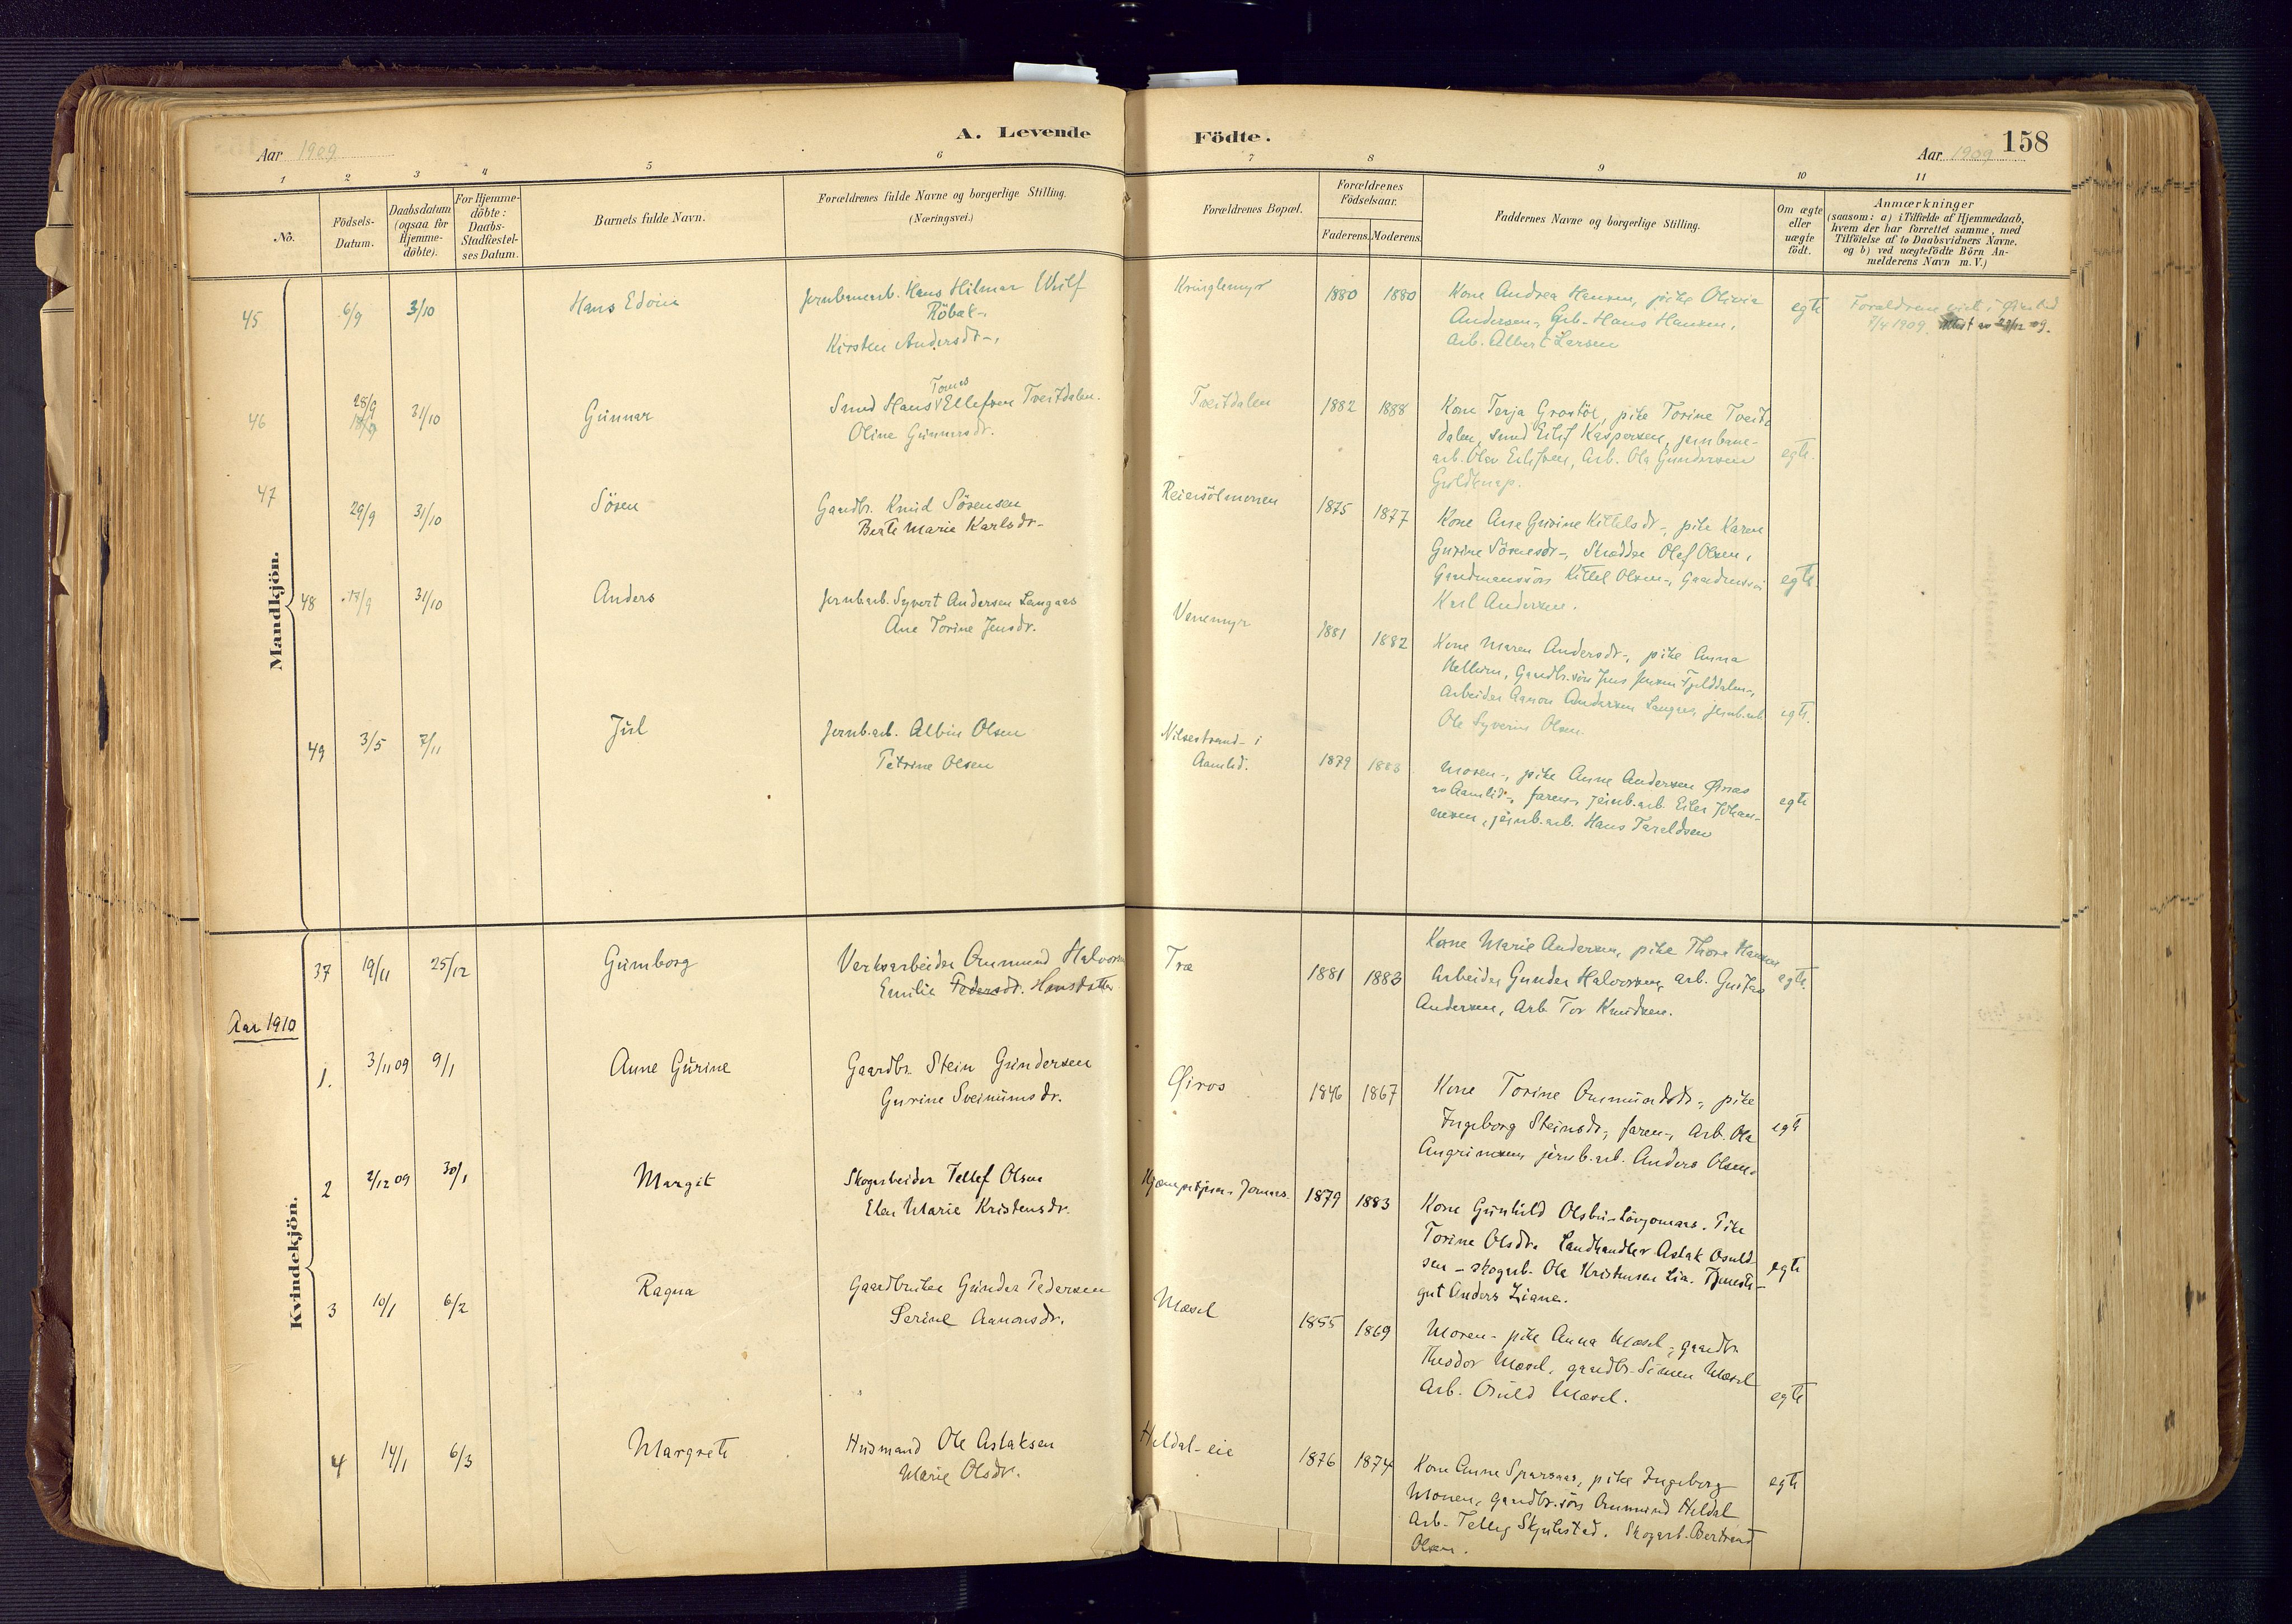 A. Levende Födte.
158
Aar 1909
Aar 1909
1 2 3 4 5 6 7 8 9 10 11
No.
Födsels-
Datum.
Daabsdatum
(ogsaa for
Hjemme-
döbte).
For Hjemme-
döbte:
Daabs-
Stadfæstel-
ses Datum.
Barnets fulde Navn.
Forældrenes fulde Navne og borgerlige Stilling.
(Næringsvei.)
Forældrenes Bopæl.
Forældrenes
Födselsaar.
Faderens. Moderens.
Faddernes Navne og borgerlige Stilling.
Om ægte
eller
uægte
födt.
Anmærkninger
(saasom: a) i Tilfælde af Hjemmedaab,
hvem der har forrettet samme, med
Tilföielse af to Daabsvidners Navne,
og b) ved uægtefödte Börn An-
melderens Navn m. V.)
Mandkjön.
45 6/9 3/10 Hans Edvin
Jernbanearb. Hans Hilmar Wulf
Röbak-,
Kirsten Andersdr-,
Kringlemyr 1880 1880
Kone Andrea Hansen, pike Olivia
Andersen, Grb. Hans Hansen,
Arb. Albert Larsen
egte
Forældrene viet i
7/4 1909. 09.
46 28/9 31/10 Gunnar
Smed Hans Tomas Ellefsen Tveitdalen.
Oline Gunnarsdr.
Tveitdalen 1882 1888
Kone Terja Grostöl, pike Torine Tveit-
dalen, smed Eilif Kaspersen, jernbane-
arb. Olav Eilifsen, Arb. Ola Gundersen
Guldknap.
egte.
47 29/9 31/10 Sören
Gaardbr. Knud Sörensen
Berte Marie Karlsdr-
Reiersölmonen 1875 1877
Kone Ane Gurine Kittelsdr-, pike Karen
Gurine Sörensdr-, Skrædder Olaf Olsen,
Gaardmannssön Kittel Olsen-, Gaardmssön
Karl Andersen.
egte
48 31/10 Anders
Jernb.arb. Syvert Andersen Langaas
Ane Torine Jensdr.
Venemyr 1881 1882
Kone Maren Andersdr-, pike Anna
Gaardbr.sön Jens Jensen Fjelddalen-,
Arbeider Aanon Andersen Langaas, jernb.arb.
Ole Syverin Olsen.
egte.
49 3/5 7/11 Jul
Jernb.arb. Albin Olsen
Petrine Olsen
Nilsestrand- i
Aamlid.
1879 1883
Moren-, pike Anne Andersen Øinas
av Aamlid-, faren, jernb.arb. Eiler Johan-
nesen, jernb.arb. Hans Taraldsen
egte
Kvindekjön.
37 19/11 25/12 Gunborg
Verksarbeider Aanund Halvorsen
Emilie Pedersdr. Hansdatter
Træ 1881 1883
Kone Marie Andersen, pike Thora Hansen
Arbeider Gunder Halvorsen, arb. Gustav
Andersen, Arb. Tor Knudsen.
egte.
Aar 1910
1. 3/11 09 9/1 Anne Gurine
Gaardbr. Stein Gundersen
Gurine Sveinumsdr.
Øiros 1846 1867
Kone Torine Aanundsdr-, pike
Ingeborg Steinsdr-, faren-, Arb. Ola
Angrimsen, jernb.arb. Anders Olsen.
egte
2 2/12 09 30/1 Margit
Skogarbeider Tellef Olsen
Elen Marie Kristensdr.
1879 1883
Kone Gunhild Olsbu- Lövjomaas. Pike
Torine Olsdr. Landhandler Aslak Osuld-
sen - skogarb. Ole Kristensen Lia. Tjeneste-
gut Anders Liane.
egte
3 10/1 6/2 Ragna
Gaardbruker Gunder Pedersen
Serine Aanonsdr.
Mæsel 1855 1869
Moren- pike Anna Mæsel-, gaardbr.
Theodor Mæsel, gaardbr. Simen Mæsel
Arb. Osuld Mæsel.
egte
4 14/1 6/3 Margrete
Husmand Ole Aslaksen
Marie Olsdr.
Heldal-eie 1876 1874
Kone Anne Sparsaas, pike Ingeborg
Monen, gaardbr.sön Aanund Heldal
Arb. Tellef Skjulestad. Skogarb. Bertrand
Olsen.
egte